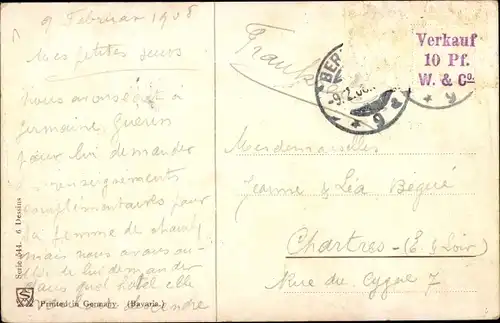 9 Februar 1908
Mes petites sœurs
Nous avons écrit à
Germaine Guérin
pour lui demander
renseignements
complémentaires pour
la femme de chamb
mais nous avons
de lui demander
dans quel hôtel elle
Serie 544. 6 Dessins
Printed in Germany. (Bavaria.)
BER
-9.2.08.
* 9 a *
* 9
Verkauf
10 Pf.
W. & Co.
Mesdemoiselles
Jeanne & Léa Bégué
Chartres - (E. & Loir)
Rue du Cygne 7